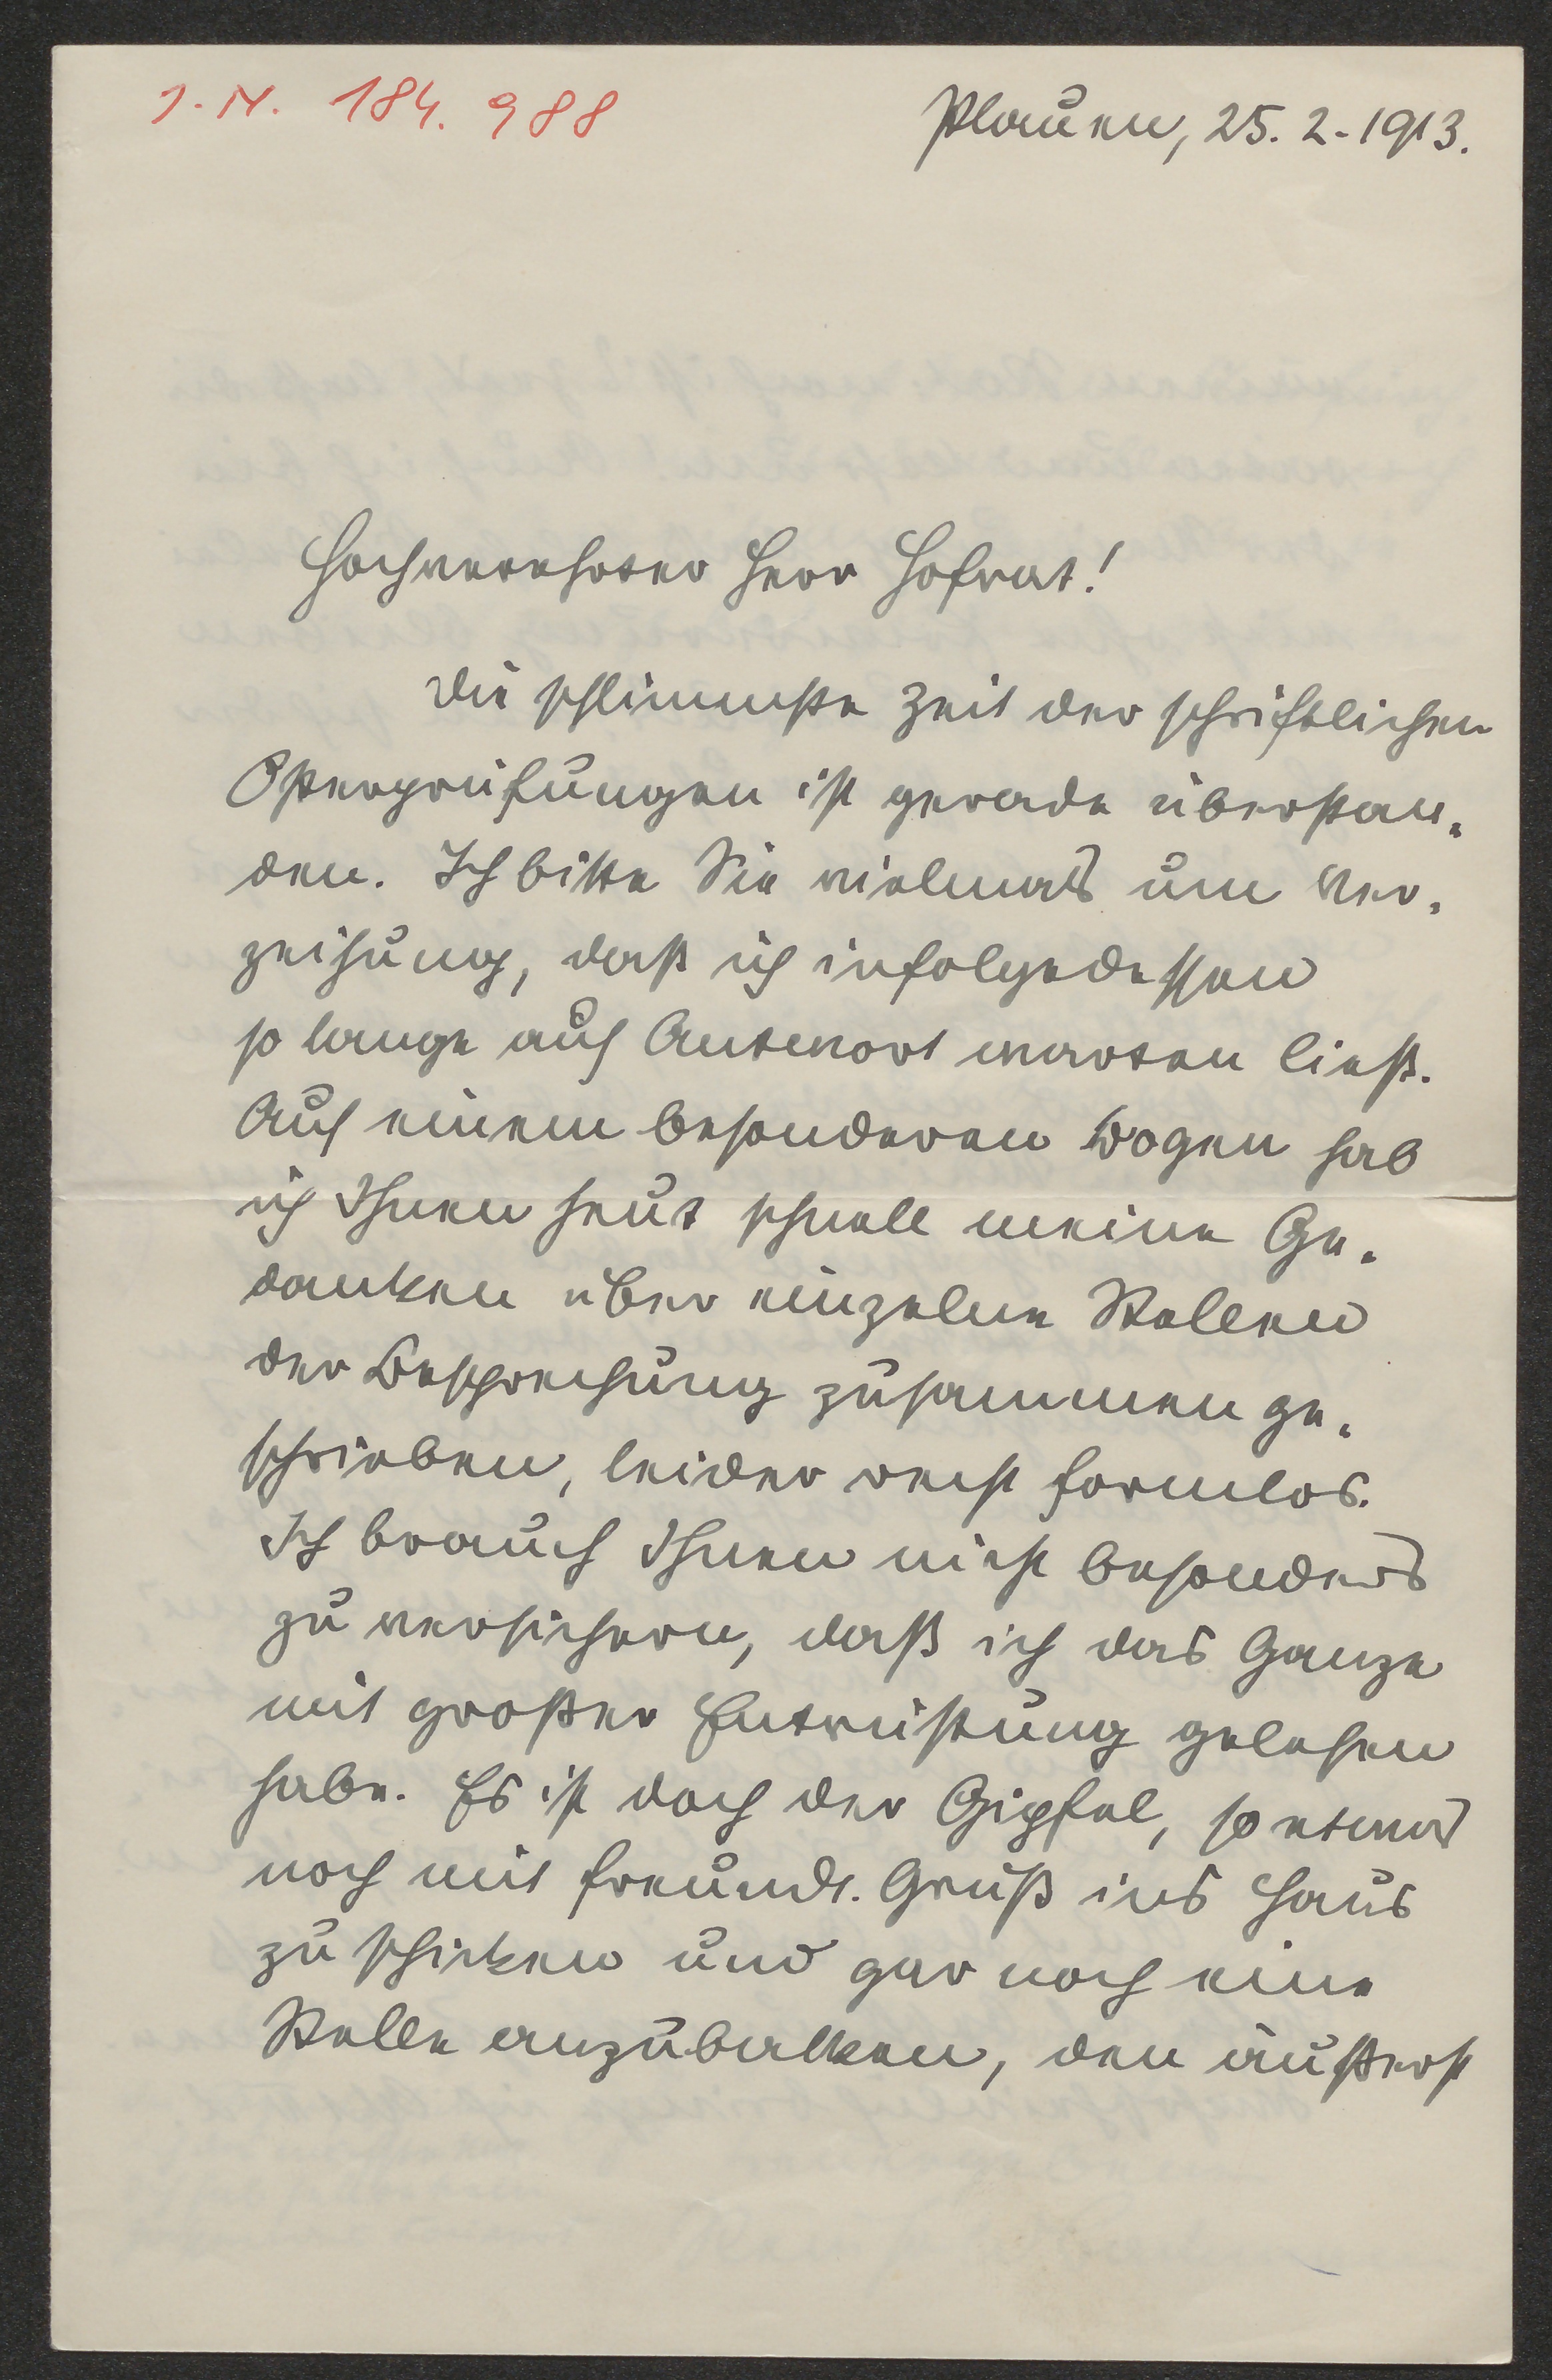 J. N. 184.988
Plauen, 25. 2. 1913.
Hochverehrter Herr Hofrat!
Die schlimmste Zeit der schriftlichen
Osterprüfungen ist gerade überstan-
den. Ich bitte Sie vielmals um Ver-
zeihung, daß ich infolgedessen
so lange auf Antwort warten ließ.
Auf einem besonderen Bogen hab
ich Ihnen heut schnell meine Ge-
danken über einzelne Stellen
der Besprechung zusammen ge-
schrieben, leider recht formlos.
Ich brauch Ihnen nicht besonders
zu versichern, daß ich das Ganze
mit großer Entrüstung gelesen
habe. Es ist doch der Gipfel, so etwas
noch mit freundl. Gruß ins Haus
zu schicken und gar noch eine
Stelle anzubalken, den äußerst